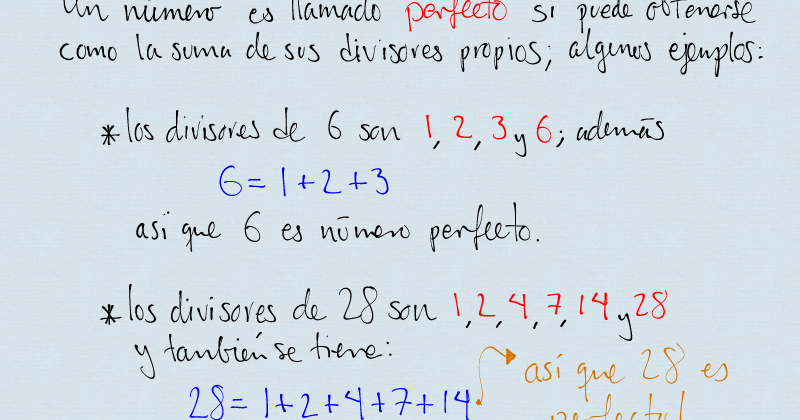 Un número es llamado perfecto si puede obtenerse
como la suma de sus divisores propios; algunos ejemplos:
* los divisores de 6 son 1, 2, 3 y 6; además
6 = 1 + 2 + 3
así que 6 es número perfecto.
* los divisores de 28 son 1, 2, 4, 7, 14 y 28
y también se tiene:
28 = 1 + 2 + 4 + 7 + 14
así que 28 es
perfecto!